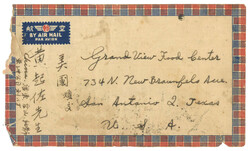 BY AIR MAIL
PAR AVION
美國
黃超佐先生
Grand View Food Center
734 N. New Braunfels Ave
San Antonio 2, Texas
U. S. A.